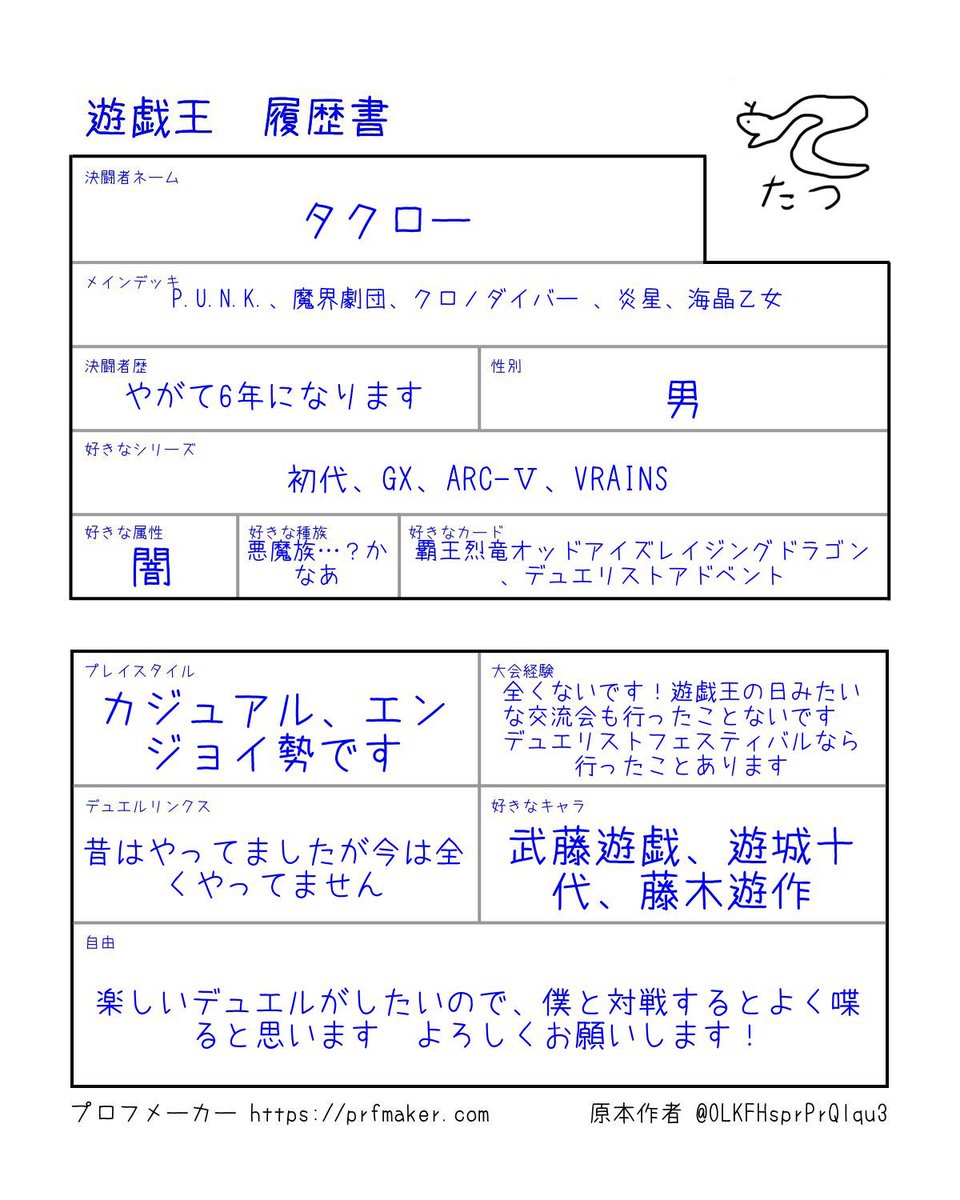 遊戯王　履歴書
たつ
決闘者ネーム
タクロー
メインデッキ
P.U.N.K.、魔界劇団、クロノダイバー 、炎星、海晶乙女
決闘者歴
やがて6年になります
性別
男
好きなシリーズ
初代、GX、ARC-Ⅴ、VRAINS
好きな属性
闇
好きな種族
悪魔族…？か
なあ
好きなカード
覇王烈竜オッドアイズレイジングドラゴン
、デュエリストアドベント
プレイスタイル
カジュアル、エン
ジョイ勢です
大会経験
全くないです！遊戯王の日みたい
な交流会も行ったことないです
デュエリストフェスティバルなら
行ったことあります
デュエルリンクス
昔はやってましたが今は全
くやってません
好きなキャラ
武藤遊戯、遊城十
代、藤木遊作
自由
楽しいデュエルがしたいので、僕と対戦するとよく喋
ると思います　よろしくお願いします！
プロフメーカー https://prfmaker.com
原本作者 @OLKFHsprPrQlqu3